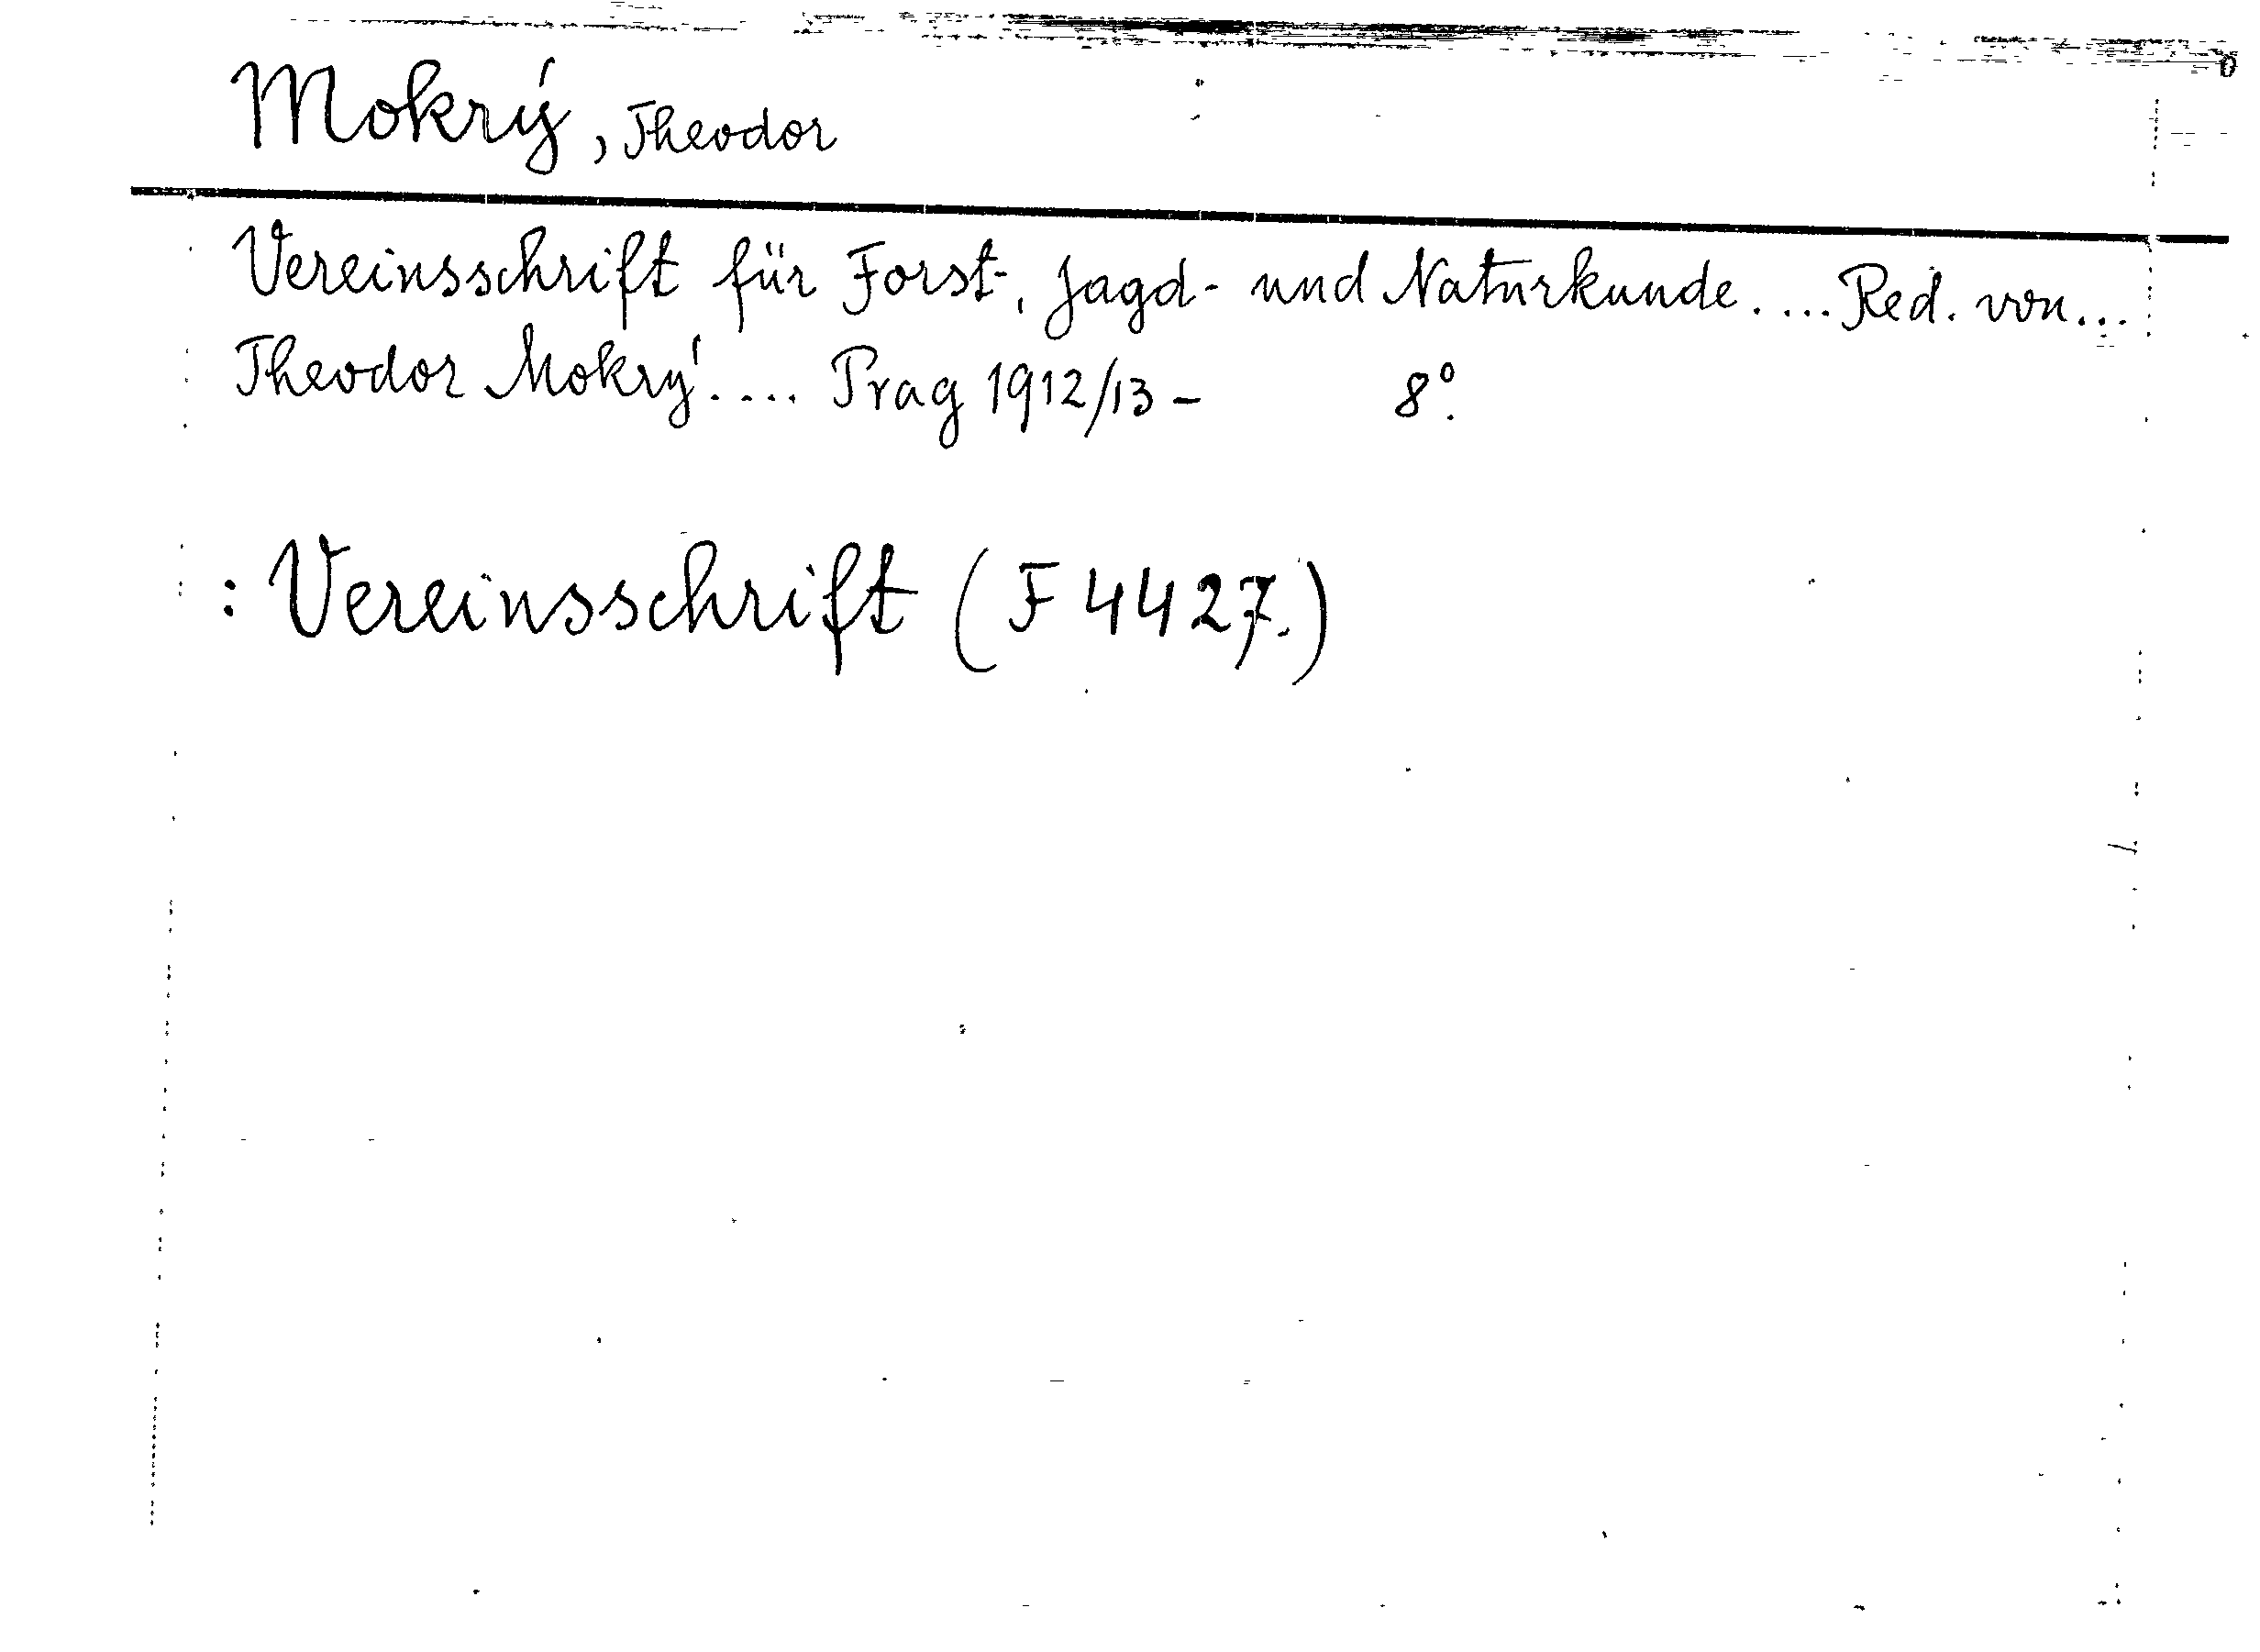 Mokrý, Theodor
Vereinsschrift für Forst-, Jagd- und Naturkunde.... Red. von...
Theodor Mokrý.... Prag 1912/13 - 8°.
: Vereinsschrift (F 4427.)